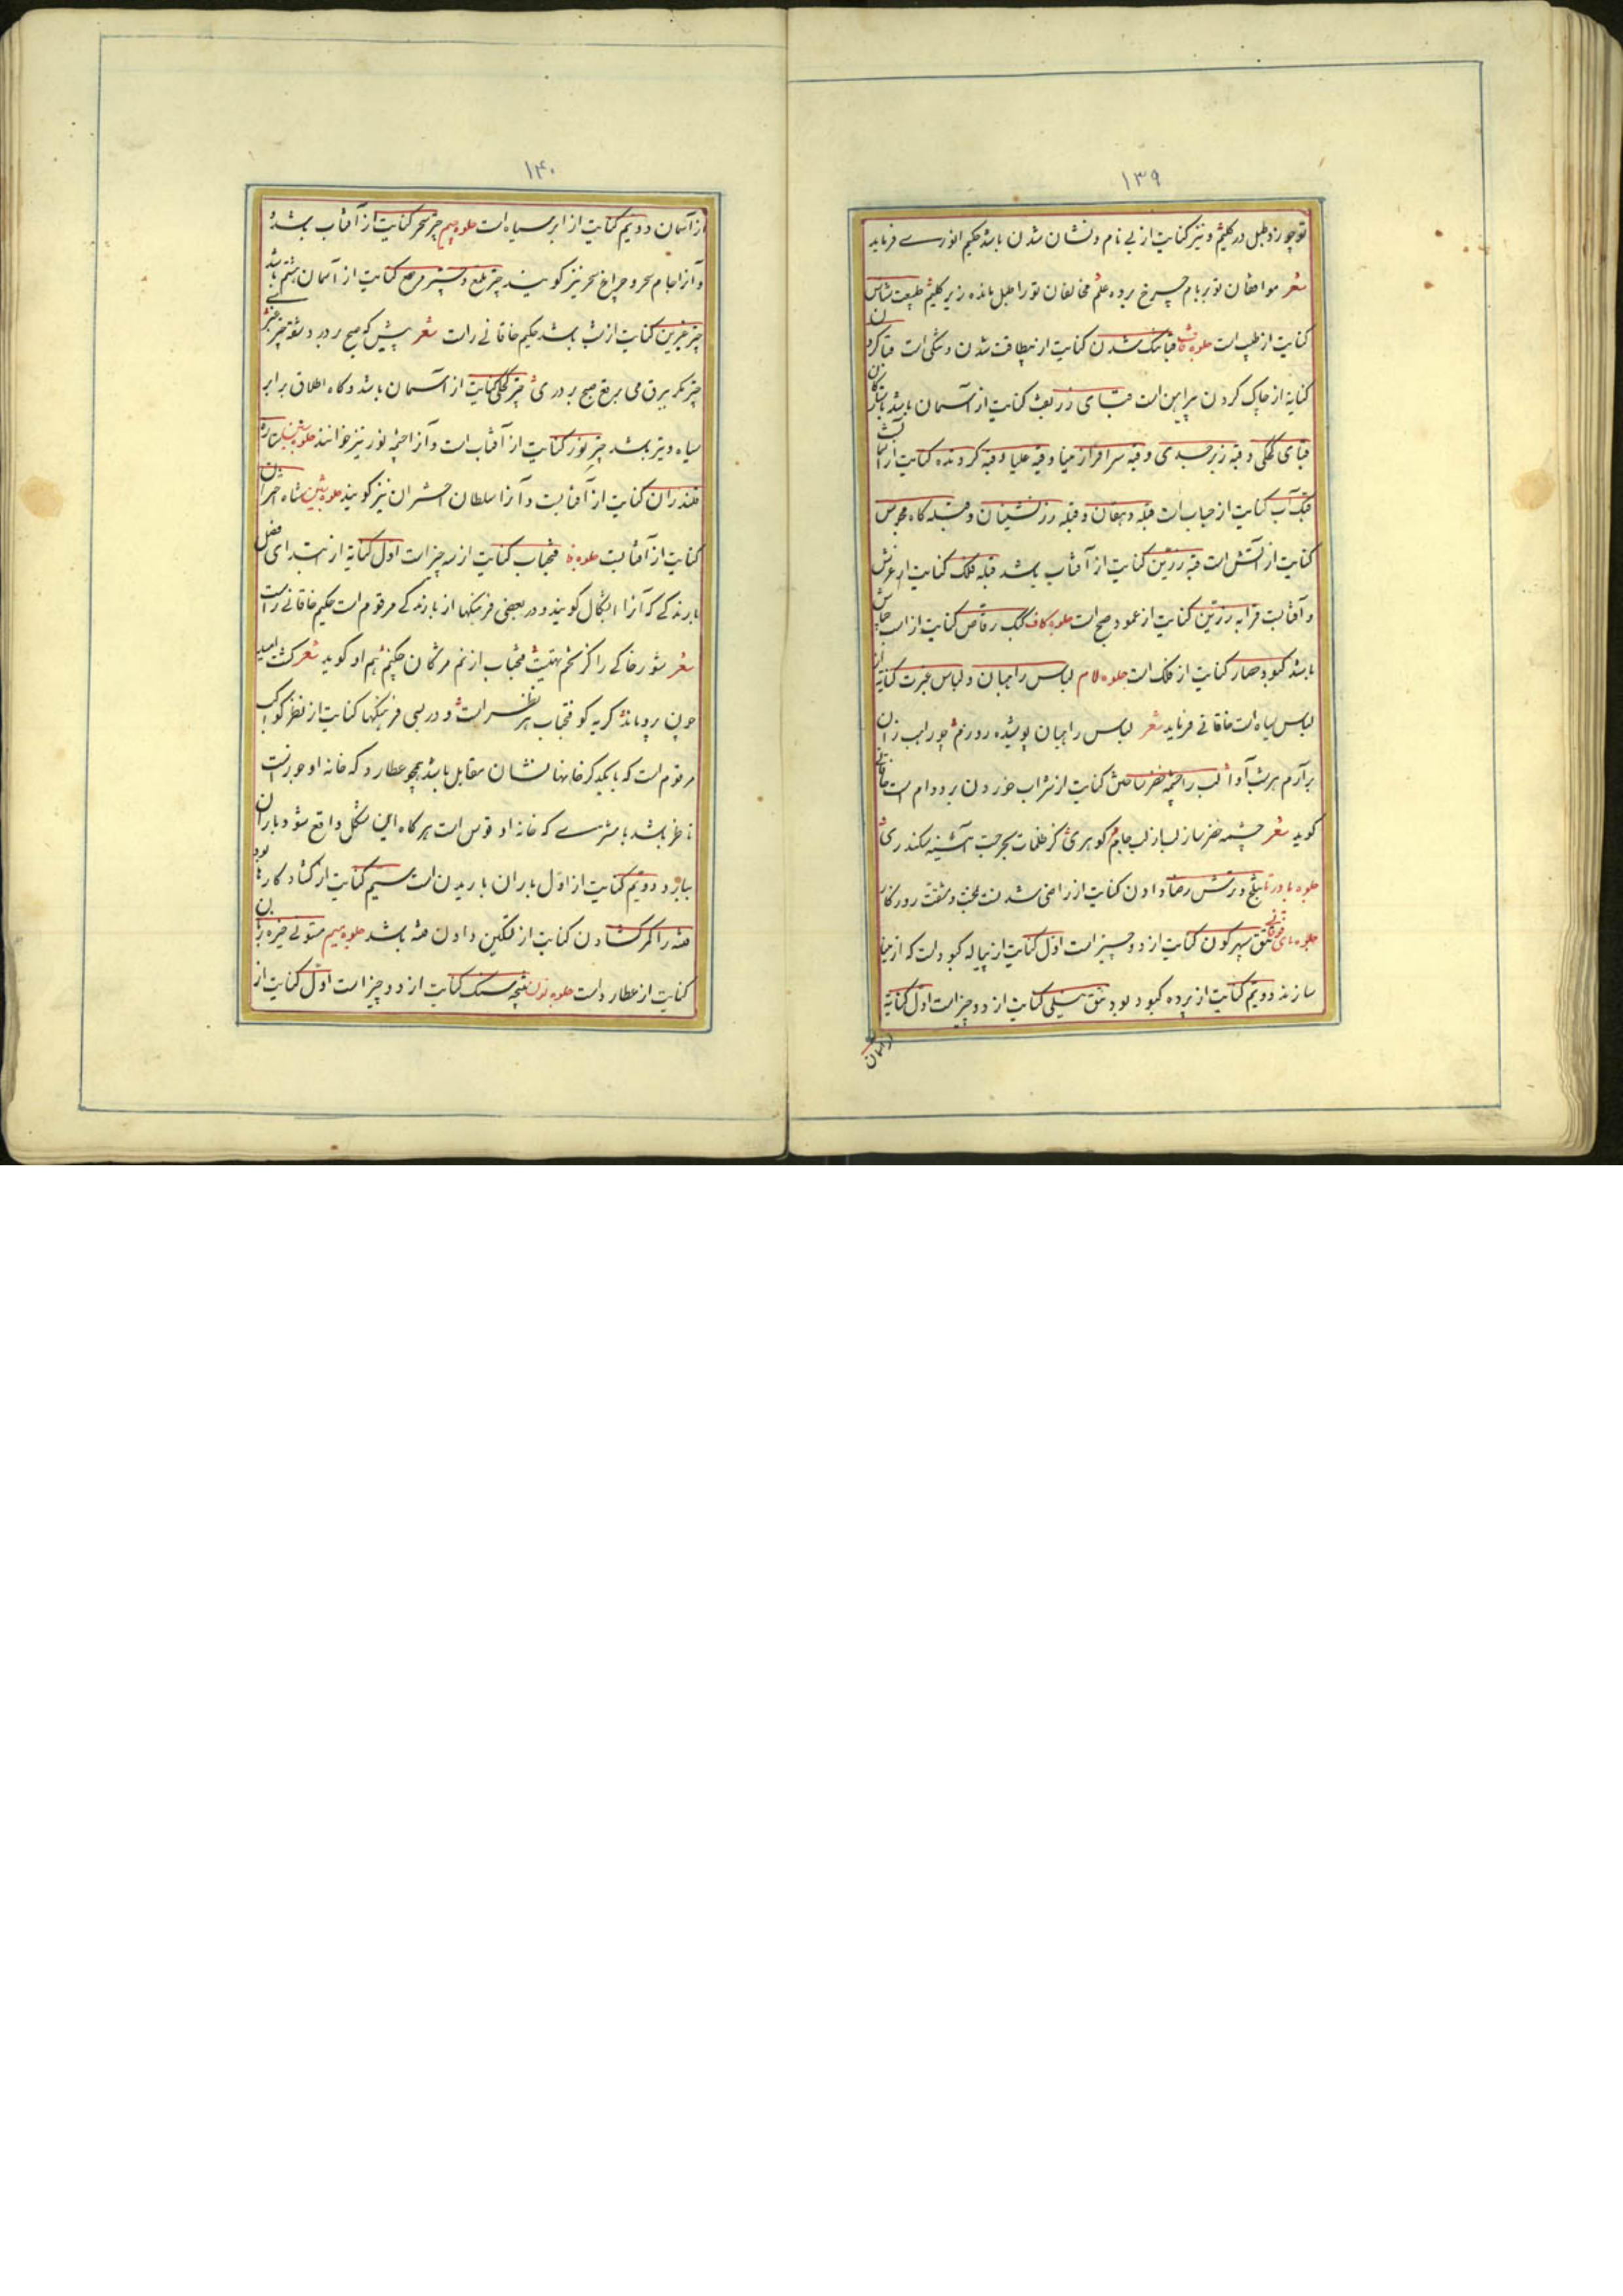 ۱۳۹
تو چو زد طبل در کلیم و نیز کنایت از بی نام و نشان شدن باشد حکیم انوری فرماید
شعر موافقان تو بر بام چرخ برده علم مخالفان تو را طبل مانده زیر کلیم طبیعت شناس
کنایت از طبیب است جلوه قاف قبا تنک شدن کنایت از بیطاقت شدن و تنکی است قبا کردن
کنایه از چاک کردن پیراهن است قبای زربفت کنایت از آسمان باشد با ستارکان
قبای کحلی و قبه زبرجدی و قبه سرافراز مینا و قبه علیا و قبه کردنده کنایت از آسمان است
قبه آب کنایت از حباب است قبله دهقان و قبله رزنشینان و قبله کاه مجوس
کنایت از آتش است قبه زرین کنایت از آفتاب باشد قبله فلک کنایت از عرش
و آفتابست قرابه زرین کنایت از عمود صبح است جلوه کاف کبک رقاص کنایت از اسب
باشد کبود حصار کنایت از فلک است جلوه لام لباس راهبان و لباس عبرت کنایه از
لباس سیاه است خاقانی فرماید شعر لباس راهبان پوشیده روزم چو راهب زان
برآرم هر شب آوا لب را چشمه خضر ساختن کنایت از شراب خوردن بر دوام است خاقانی
کوید شعر چشمه خضر ساز لب از لب جام کوهری کز ظلمات بحر جست آینه سکندری
جلوه با در تا بتلخ و ترش رضا دادن کنایت از راضی شدنست بمحنت و مشقت روزکار
جلوه تای فوقانی تتق سپهر کون کنایت از دو چیز است اول کنایت از پیاله کبود است که از مینا
سازند دویم کنایت از پرده کبود بود تتق نیلی کنایت از دو چیز است اول کنایه
از آسمان
۱۴۰
از آسمان دویم کنایت از ابر سیاه است جلوه جیم چتر سحر کنایت از آفتاب باشد
و آنرا جام سحر و چراغ سحر نیز کویند چتر مرصع کنایت از آسمان هشتم باشد
چتر عنبرین کنایت از شب باشد حکیم خاقانی راست شعر پیش که صبح بردرد شقه چتر عنبری
چتر کحلی کنایت از آسمان باشد و کاه اطلاق بر ابر
سیاه و تیره باشد چتر نور کنایت از آفتاب است و آنرا چشمه نور نیز خوانند جلوه سین
قلندران کنایت از آفتابست و آنرا سلطان اختران نیز کویند جلوه شین شاه اختران
کنایت از آفتابست جلوه فا فتحباب کنایت از سه چیز است اول کنایه از ابتدای فصل
بارندکی که آنرا کویند و در بعضی فرهنکها از بارندکی مرقوم است حکیم خاقانی راست
شعر شوره خاکی را کز تخم تهیست فتحباب از نم مژکان چکنم هم او کوید شعر کشت امید
چون برویاند کریه کو فتحباب هر نظر است و در بسی فرهنکها کنایت از نظر کواکب
مرقوم است که با یکدیکر خانهاشان مقابل باشد همچو عطارد که خانه او جوزاست
ناظر باشد با مشتری که خانه او قوس است هر کاه این شکل واقع شود باران
ببارد و دویم کنایت از اول باران باریدن است سیم کنایت از کشاد کارها بود
فتنه را کمر کشادن کنایت از تسکین دادن فتنه باشد جلوه میم
کنایت از عطاردست جلوه نون نتیجه سنک کنایت از دو چیز است اول کنایت از